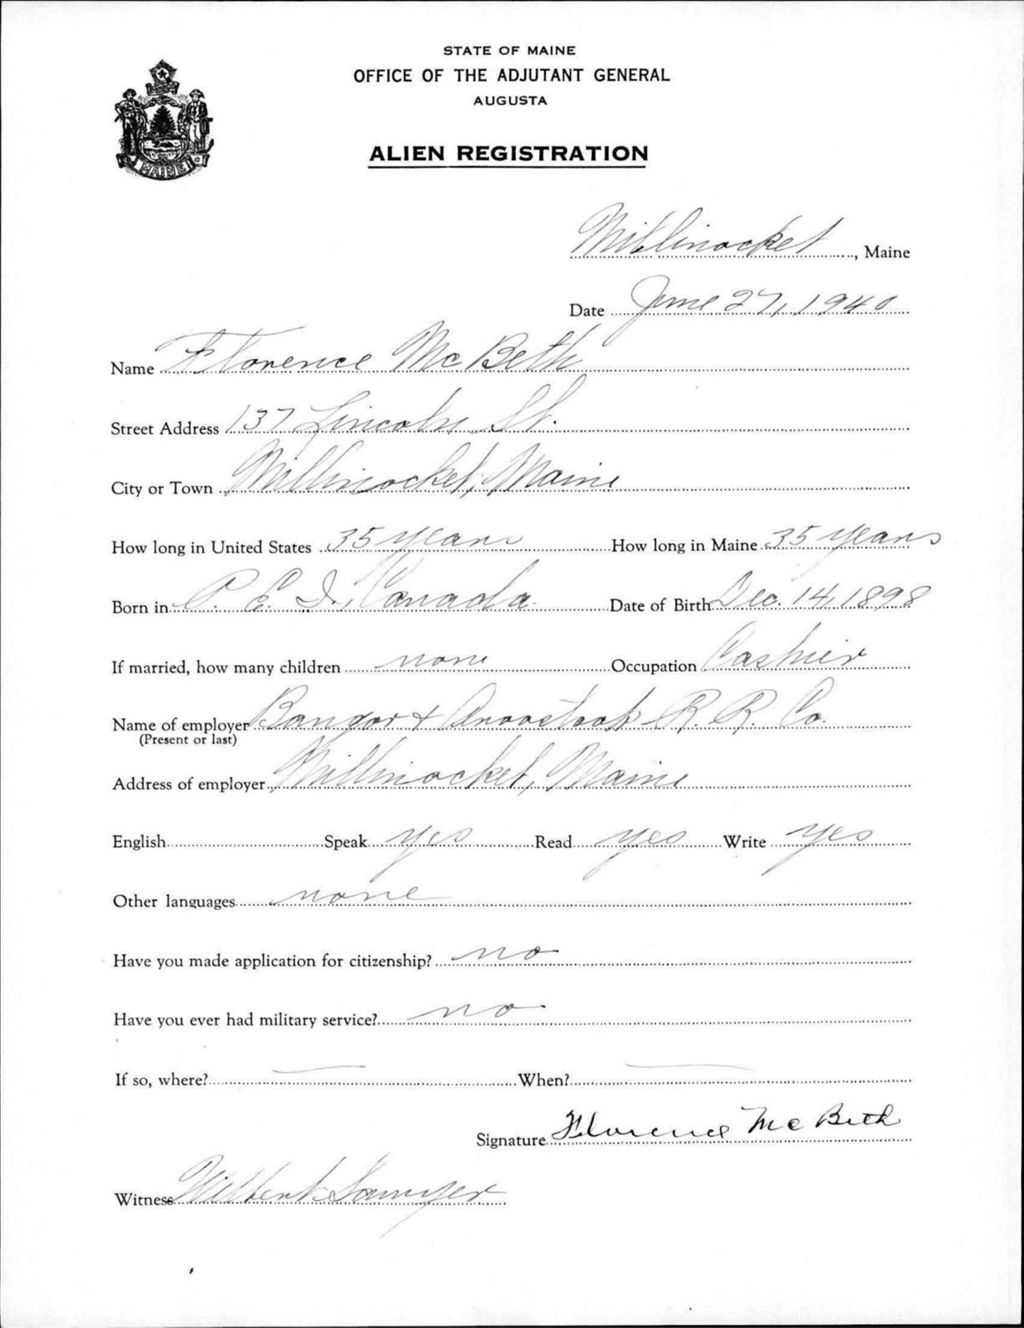 STATE OF MAINE
OFFICE OF THE ADJUTANT GENERAL
AUGUSTA
ALIEN REGISTRATION
MAINE
Millinocket, Maine
Date June 27, 1940
Name Florence McBeth
Street Address 137 Lincoln St.
City or Town Millinocket, Maine
How long in United States 35 years How long in Maine 35 years
Born in P. E. I., Canada Date of Birth Dec. 14, 1898
If married, how many children none Occupation Cashier
Name of employer Bangor & Aroostook R. R. Co.
(Present or last)
Address of employer Millinocket, Maine
English Speak yes Read yes Write yes
Other languages none
Have you made application for citizenship? no
Have you ever had military service? no
If so, where? — When? —
Signature Florence McBeth
Witness Wilbert Sawyer